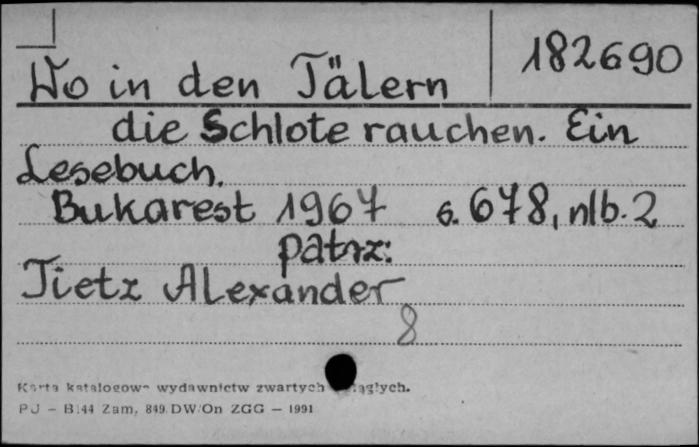 182690
Wo in den Tälern
die Schlote rauchen. Ein
Lesebuch.
Bukarest 1967 s. 678, nlb. 2
patrz:
Tietz Alexander
8
Karta katalogowa wydawnictw zwartych ciągłych.
PU – B.44 Zam. 849 DW/On ZGG – 1991